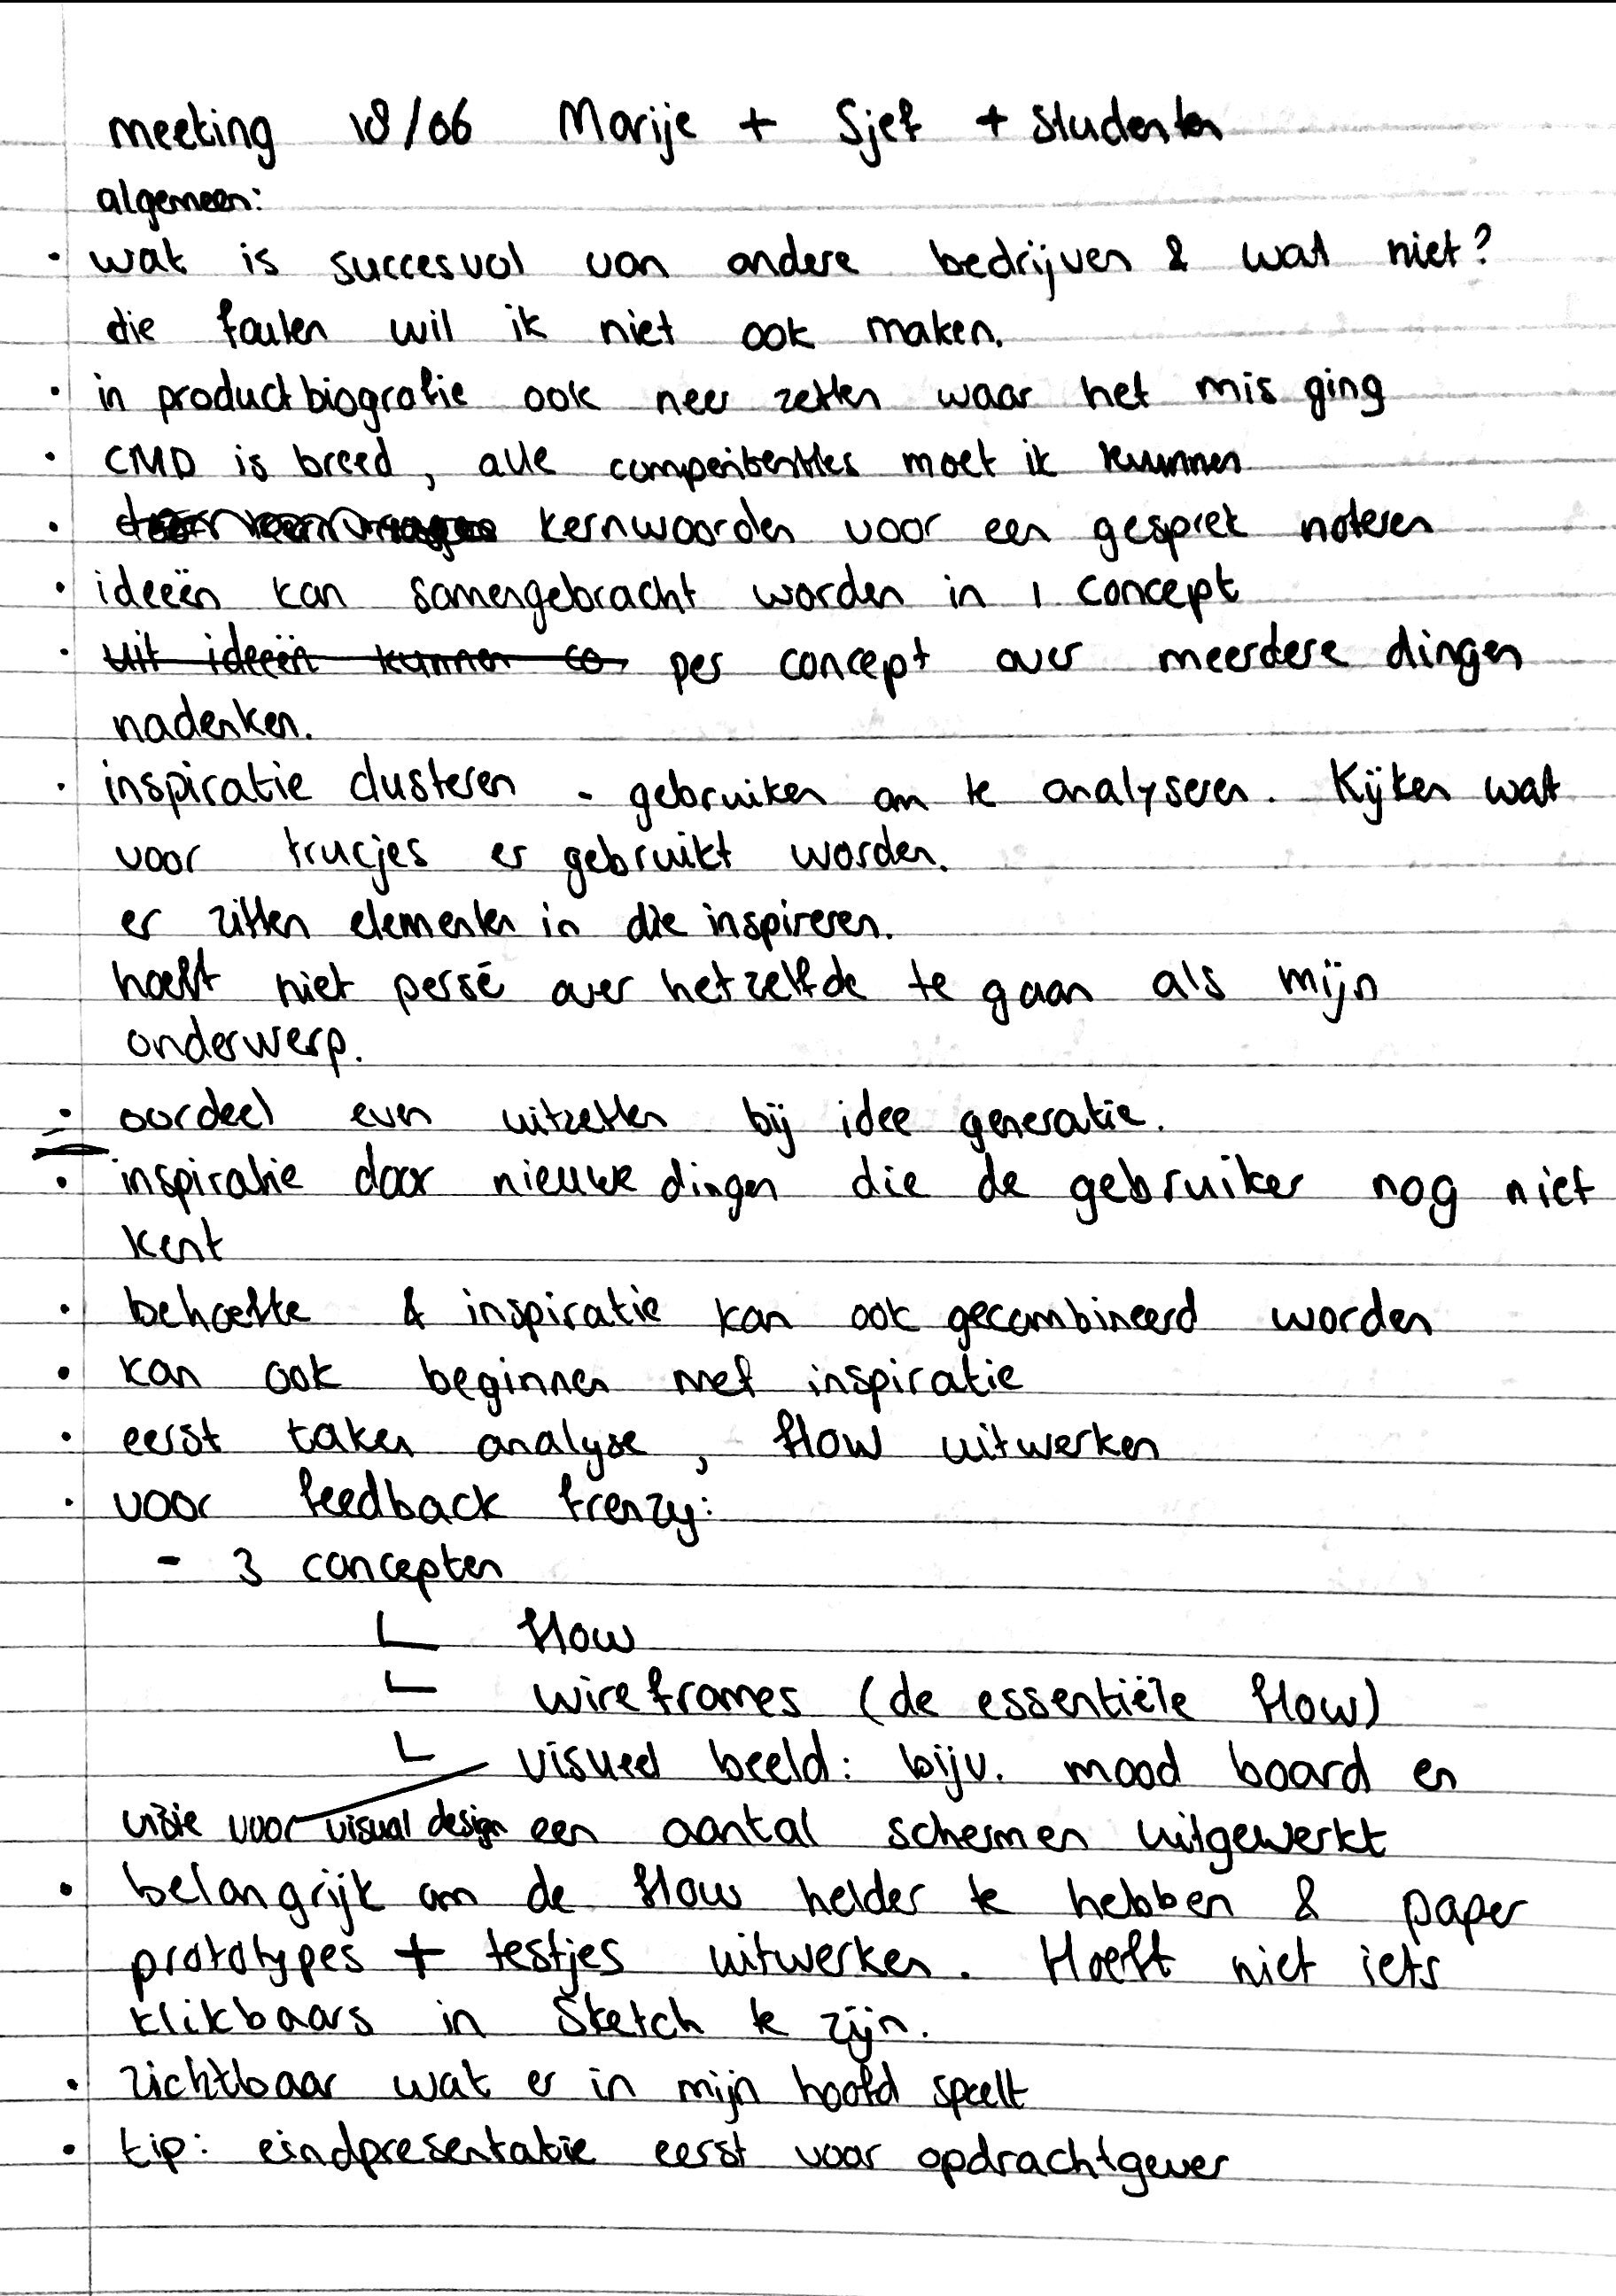 meeting 18/06 Marije + Sjef + studenten
algemeen:
• wat is succesvol van andere bedrijven & wat niet?
die fouten wil ik niet ook maken.
• in productbiografie ook neer zetten waar het mis ging
• CMD is breed, alle moet ik kunnen
• kernwoorden voor een gesprek noteren
• ideeën kan samengebracht worden in 1 concept
• uit ideeën kunnen co per concept over meerdere dingen
nadenken.
• inspiratie clusteren - gebruiken om te analyseren. Kijken wat
voor trucjes er gebruikt worden.
er zitten elementen in die inspireren.
hoeft niet persé over hetzelfde te gaan als mijn
onderwerp.
• oordeel even uitzetten bij idee generatie.
• inspiratie door nieuwe dingen die de gebruiker nog niet
kent
• behoefte & inspiratie kan ook gecombineerd worden
• kan ook beginnen met inspiratie
• eerst taken analyse, flow uitwerken
• voor feedback frenzy:
- 3 concepten
flow
wireframes (de essentiële flow)
visueel beeld: bijv. mood board en
visie voor visual design een aantal schermen uitgewerkt
• belangrijk om de flow helder te hebben & paper
prototypes + testjes uitwerken. Hoeft niet iets
klikbaars in Sketch te zijn.
• zichtbaar wat er in mijn hoofd speelt
• tip: eindpresentatie eerst voor opdrachtgever